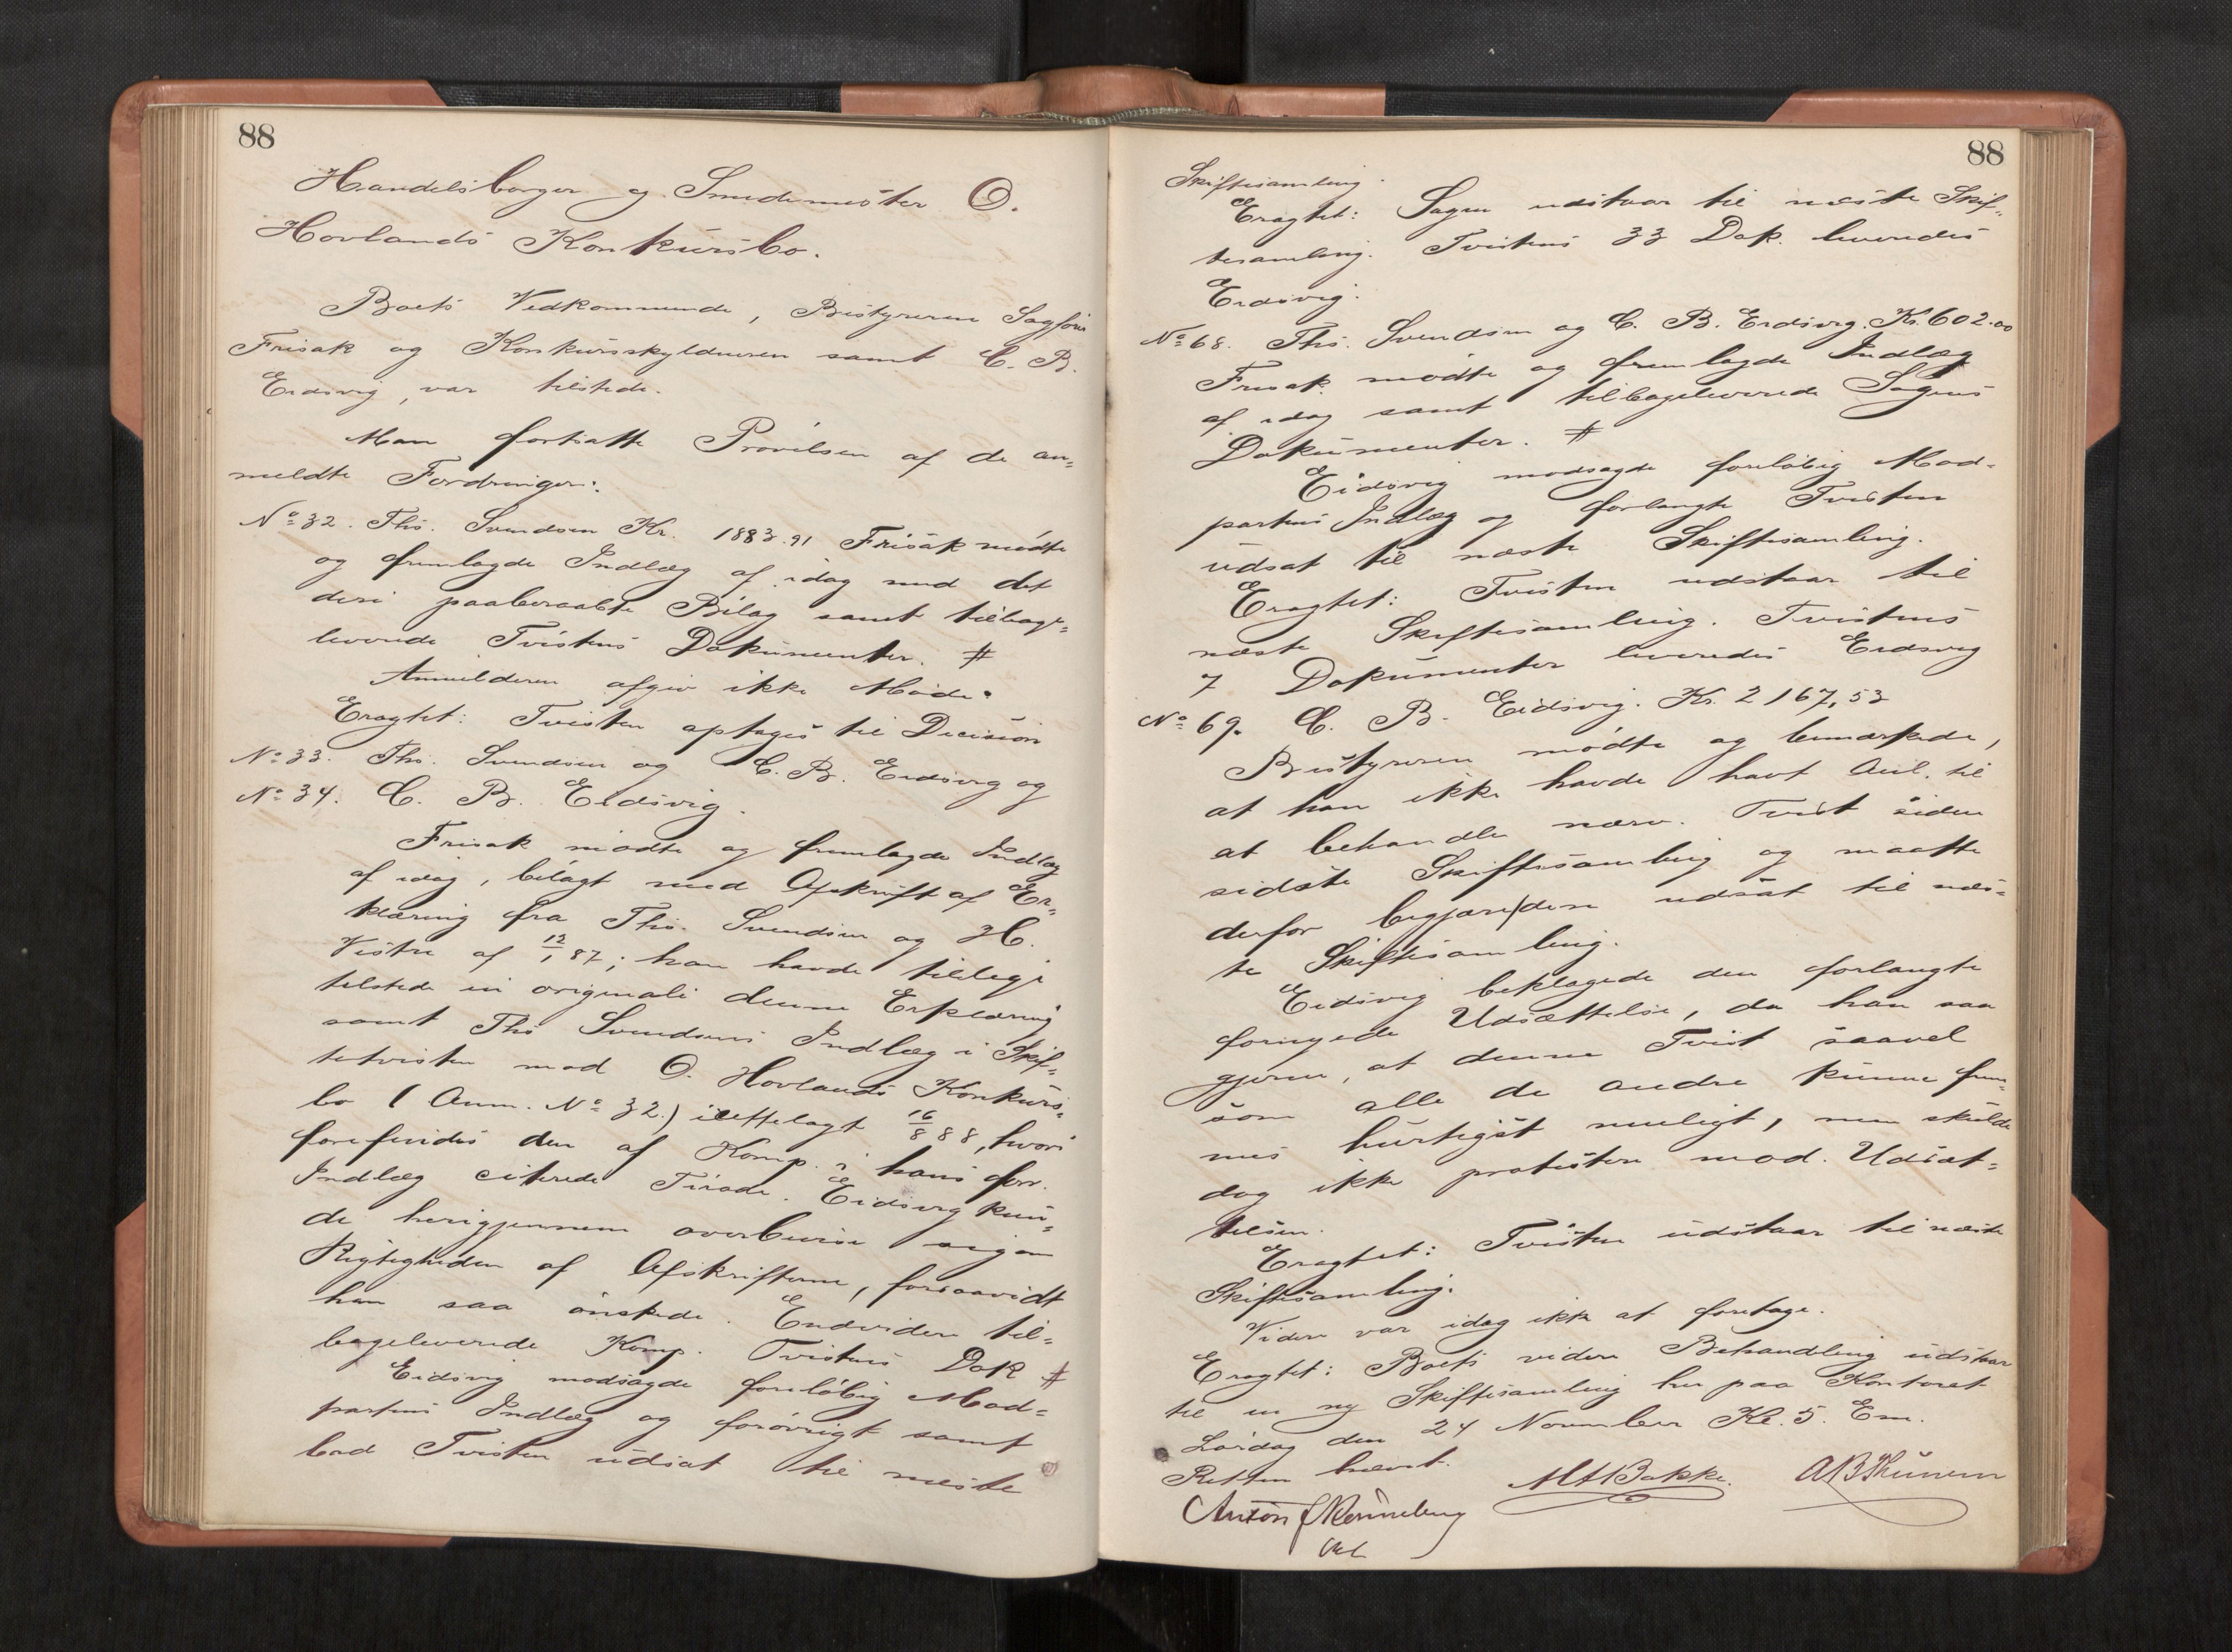 88
Handelsborger og Smedemester O.
Hovlands Konkursbo.
Boets Vedkommende, Bestyreren Sagfører
Frisak og Konkursskyldneren samt C. B.
Eidsvig, var tilstede.
Man fortsatte Prøvelsen af de an=
meldte Fordringer:
No 32. Ths. Svendsen Kr. 1883.91 Frisak mødte
og fremlagde Indlæg af idag med det
deri paaberaabte Bilag samt tilbage=
leverede Tvistens Dokumenter. #
Anmelderen afgiv ikke Møde.
Eragtet: Tvisten optages til Decision
No 33. Ths. Svendsen og C. B. Eidsvig og
No 34. C. B. Eidsvig.
Frisak mødte og fremlagde Indlæg
af idag, bilagt med Afskrift af Er=
klæring fra Ths. Svendsen og H.
Vestre af 12/1 87; han havde tillige
tilstede in originali denne Erklæring
samt Ths Svendsens Indlæg i Skif=
tetvisten mod O. Hovlands Konkurs=
bo (Anm. No 32.) irettelagt 16/8 88, hvori
forefindes den af Komp. i hans forr.
Indlæg citerede Tirade. Eidsvig kun=
de herigjennem overbevise sig om
Rigtigheden af Afskrifterne, forsaavidt
han saa ønskede. Endvidere til=
bageleverede Komp. Tvistens Dok #
Eidsvig modsagde foreløbig Mod=
partens Indlæg og forøvrigt samt
bad Tvisten udsat til næste
88
Skiftesamling.
Eragtet: Sagen udstaar til næste Skif=
tesamling. Tvistens 33 Dok. leveredes
Eidsvig.
No 68. Ths. Svendsen og C. B. Eidsvig. Kr. 602.00
Frisak mødte og fremlagde Indlæg
af idag samt tilbageleverede Sagens
Dokumenter. #
Eidsvig modsagde foreløbig Mod=
partens Indlæg og forlangte Tvisten
udsat til næste Skiftesamling.
Eragtet: Tvisten udstaar til
næste Skiftesamling. Tvistens
7 Dokumenter leveredes Eidsvig
No 69. C. B. Eidsvig. Kr. 2167,53
Bestyreren mødte og bemærkede,
at han ikke havde havt Anl. til
at behandle nærv. Tvist siden
sidste Skiftesamling og maatte
derfor begjære den udsat til næs=
te Skiftesamling.
Eidsvig beklagede den forlangte
fornyede Udsættelse, da han saa
gjerne, at denne Tvist saavel
som alle de andre kunne frem=
mes hurtigst muligt, men skulde
dog ikke protestere mod Udsæt=
telsen.
Eragtet: Tvisten udstaar til næste
Skiftesamling.
Videre var idag ikke at foretage.
Eragtet: Boets videre Behandling udstaar
til en ny Skiftesamling her paa Kontoret
Lørdag den 24 November Kl. 5. Em.
Retten hævet.